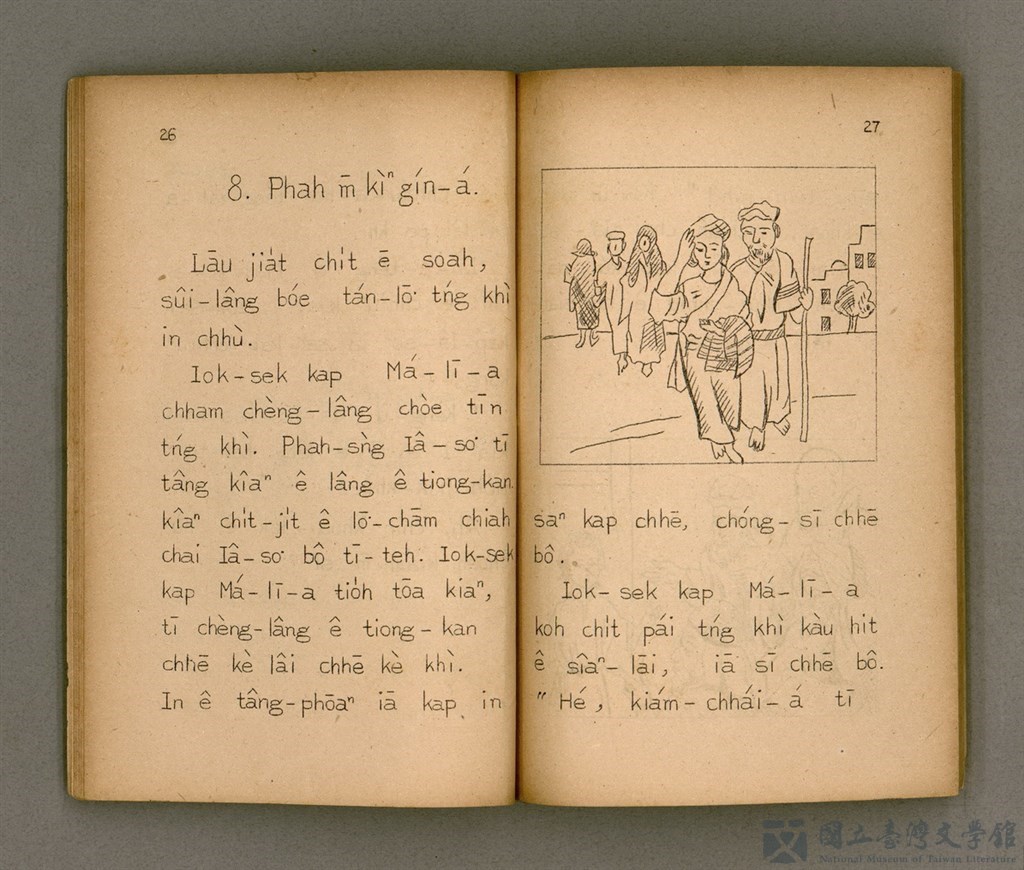 26
8. Phah m̄ kìⁿ gín-á.
Lāu jia̍t chi̍t ē soah,
sûi-lâng bóe tán-lō͘ tńg khì
in chhù.
Iok-sek kap Má-lī-a
chham chèng-lâng chòe tīn
tńg khì. Phah-sǹg Iâ-so͘ tī
tâng kîaⁿ ê lâng ê tiong-kan.
kîaⁿ chi̍t-ji̍t ê lō͘-chām chiah
chai Iâ-so͘ bô tī-teh. Iok-sek
kap Má-lī-a tio̍h tōa kiaⁿ,
tī chèng-lâng ê tiong-kan
chhē kè lâi chhē kè khì.
In ê tâng-phōaⁿ iā kap in
27
saⁿ kap chhē, chóng-sī chhē
bô.
Iok-sek kap Má-lī-a
koh chi̍t pái tńg khì kàu hit
ê sîaⁿ-lāi, iā sī chhē bô.
" Hé, kiám-chhái-á tī
國立臺灣文學館
National Museum of Taiwan Literature